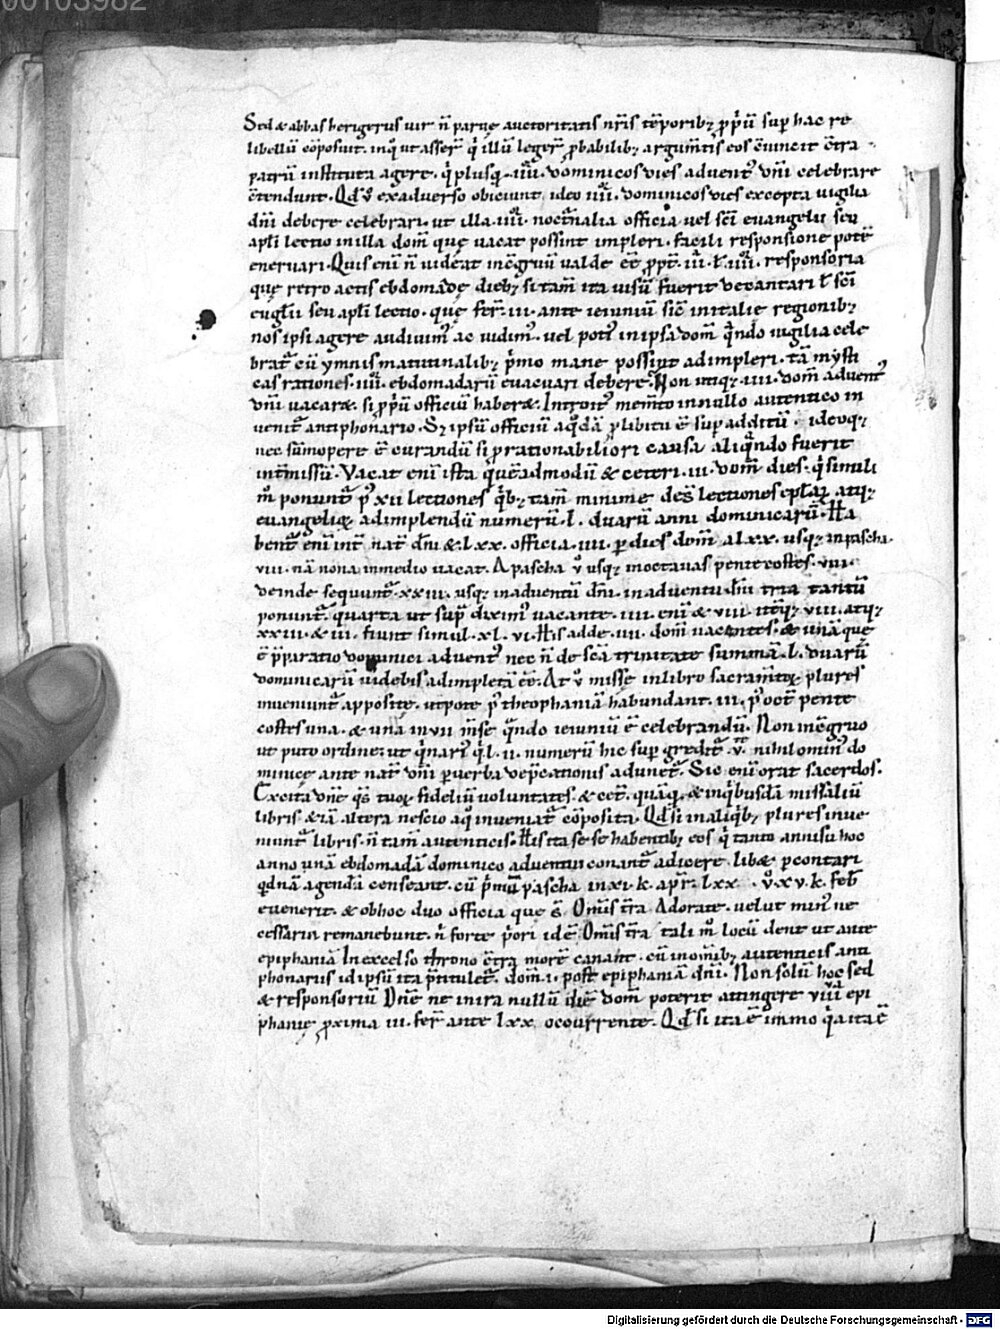 00103982
Sed & abbas herigerus uir n̄ paruę auctoritatis nr̄is tēporibꝫ ꝓpriū sup hac re
libellū cōposuit. inq̇ ut asser̄ q̇ illū leger̄ ꝓbabilibꝫ argum̄tis eos cōuincit cōtra
patrū instituta agere. q̇ plusq̄. iiii. dominicos dies aduent᷒ dn̄i celebrare
c̄tendunt. Qd̄ ů exaduerso obiciunt ideo iiii. dominicos dies excepta uigilia
dn̄i debere celebrari. ut illa. iiii. noct̄nalia officia uel sc̄i euangelii seu
apl̄i lectio in illa dom̄ quę uacat possint impleri. facili responsione potē
eneruari. Quis eni n̄ uideat incōgruū ualde ēē ꝓpt̄. iii. l̄. iiii. responsoria
quę retro actis ebdomadę diebꝫ si tam̄ ita uisū fuerit decantari l̄ sc̄i
euglii seu apl̄i lectio. quę fer̄. iii. ante ieiuniū sic̄ in italię regionibꝫ
nos ipsi agere audiuim᷒ ac uidim᷒. uel poti᷒ in ipsa dom̄ q̄ndo uigilia cele
brat᷒ cū ymnis matutinalibꝫ p̄mo mane possint adimpleri. tā mysti
cas rationes. iiii. ebdomadarū euacuari debere. Non utiqꝫ iiii. dom̄ aduent᷒
dn̄i uacar&. si ꝓpriū officiū haber&. Introit᷒ mem̄to in nullo autentico in
uenit᷒ antiphonario. Sꝫ ipsū officiū a q̇dā ꝓ libitu ē sup additū. ideoqꝫ
nec sūmopere ē curandū si ꝓ rationabiliori causa aliq̄ndo fuerit
int̄missū. Vacat eni ista quēadmodū & ceteri. iii. dom̄ dies. q̇ simili
m̄ ponunt᷒ p᷒ xii lectiones q̇bꝫ tam̄ minime des̄ lectiones epl̄aꝝ atqꝫ
euangelioꝝ adimplendū numerū. l. duarū anni dominicarū. Ha
bent᷒ eni int̄ nat̄ dn̄i & lxx. officia. iiii. ꝑ dies dom̄ a lxx. usqꝫ in pascha.
viii. nā nona in medio uacat. A pascha ů usqꝫ in octauas pentecostes. viii.
deinde sequunt᷒. xxiii. usqꝫ in aduentū dn̄i. in aduentu dn̄i tria tantū
ponunt᷒ quarta ut sup̄ dixim᷒ uacante. iiii. eni & viii. itēqꝫ viii. atqꝫ
xxiii. & iii. fiunt simul. xl. vi. His adde. iiii. dom̄ uacantes. & unā que
ē p̄paratio dominici aduent᷒ nec n̄ de sc̄a trinitate summā. l. duarū
dominicarū uidebis adimpletā ēē. At ů missę in libro sacram̄toꝝ plures
inueniunt᷒ apposite. utpote p᷒ theophaniā habundant. iii. p᷒ oct̄ pente
costes una. & una in vii m̄se q̄ndo ieiuniū ē celebrandū. Non incōgruo
ut puto ordine. ut q̇nari᷒ q̇ l. ii. numerū hic sup greditē. v. nihilomin᷒ do
minicę ante nat̄ dn̄i ꝑ uerba dep̄cationis adunet᷒. Sic eni orat sacerdos.
Excita dn̄e q̄s tuoꝝ fideliū uoluntates. & cet̄. quāq̄ & in q̇busdā missaliū
libris & iā altera nescio a q̇ inueniat᷒ cōposita. Qd̄ si in aliq̇bꝫ plures inue
niunt᷒ libris. n̄ tam̄ autenticis. His ita se se habentibꝫ eos q̇ tanto annisu hoc
anno unā ebdomadā dominico aduentui conant᷒ adicere. lib& ꝑcontari
qd̄nā agendū censeant. cū p̄mū pascha in xi. k. apr̄. lxx. ů. xv. k. feb̄
euenerit. & ob hoc duo officia que s̄. Omis̄ t̄ra Adorate. uelut min᷒ ne
cessaria remanebunt. n̄ forte p̄ori idē Omis̄ t̄ra tali m̄ locū dent ut ante
epiphaniā In excelso throno c̄tra morē canant. cū in om̄ibꝫ autenticis anti
phonariis id ipsū ita p̄titulet᷒. dom̄. i. post epiphaniā dn̄i. Non solū hoc sed
& responsoriū Dn̄e ne in ira nullū diē dom̄ poterit attingere viiii epi
phanię ꝓxima iii. fer̄ ante lxx occurrente. Qd̄ si ita ē immo q̇a ita ē
Digitalisierung gefördert durch die Deutsche Forschungsgemeinschaft - DFG